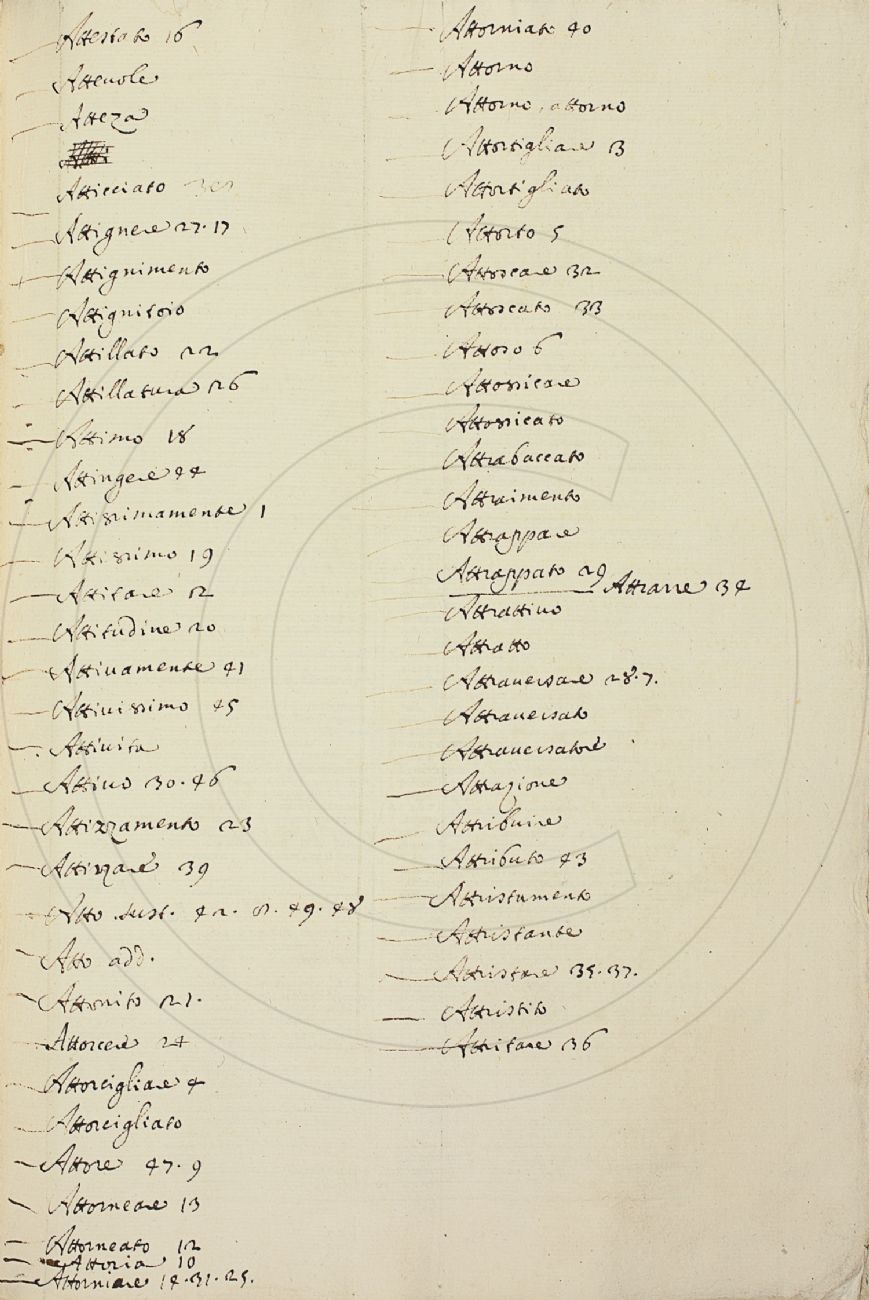 Attestato 16
Atteuole
Atteza
Atticciato
Attignere 27. 17
Attignimento
Attignitoio
Attillato 22
Attillatura 26
Attimo 18
Attingere 44
Attissimamente 1
Attissimo 19
Attitare 2
Attitudine 20
Attiuamente 41
Attiuissimo 45
Attiuita
Attiuo 30. 46
Attizzamento 23
Attizzare 39
Atto sust. 42. 8. 49. 48
Atto add.
Attonito 21.
Attorcere 24
Attorcigliare 4
Attorcigliato
Attore 47. 9
Attorneare 13
Attorneato 12
Attoria 10
Attorniare 14. 31. 25.
Attorniato 40
Attorno
Attorno, attorno
Attortigliare 3
Attortigliato
Attorto 5
Attoscare 32
Attoscato 33
Attoso 6
Attossicare
Attossicato
Attrabaccato
Attraimento
Attrappare
Attrappato 29
Attrarre 34
Attrattiuo
Attratto
Attrauersare 28. 7.
Attrauersato
Attrauersatore
Attrazione
Attribuire
Attributo 43
Attristamento
Attristante
Attristare 35. 37.
Attristito
Attritare 36